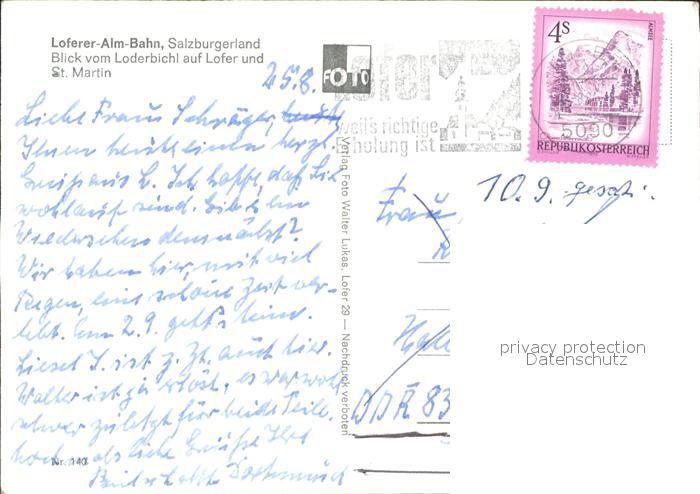 Loferer-Alm-Bahn, Salzburgerland
Blick vom Loderbichl auf Lofer und
St. Martin
25.8.
FOTO
Lofer
weil's richtige
Erholung ist
4S
ALMSEE
5090
REPUBLIK ÖSTERREICH
Liebe Frau Schräger,
Ihnen heute einen herzl.
Gruß aus L. Ich hoffe, daß Sie
wohlauf sind. Gib es ein
Wiedersehen demnächst?
Wir haben hier, mit viel
Regen, eine schöne Zeit ver-
lebt. Am 2.9. geht's heim.
Liesel S. ist z. Zt. auch hier.
Walter ist ja erlöst, es war wohl
schwer zuletzt für beide Teile.
als liebe Grüße Ihre
Nr. 140
Verlag Foto Walter Lukas, Lofer 29 — Nachdruck verboten
Frau
10.9.
DDR 83
privacy protection
Datenschutz